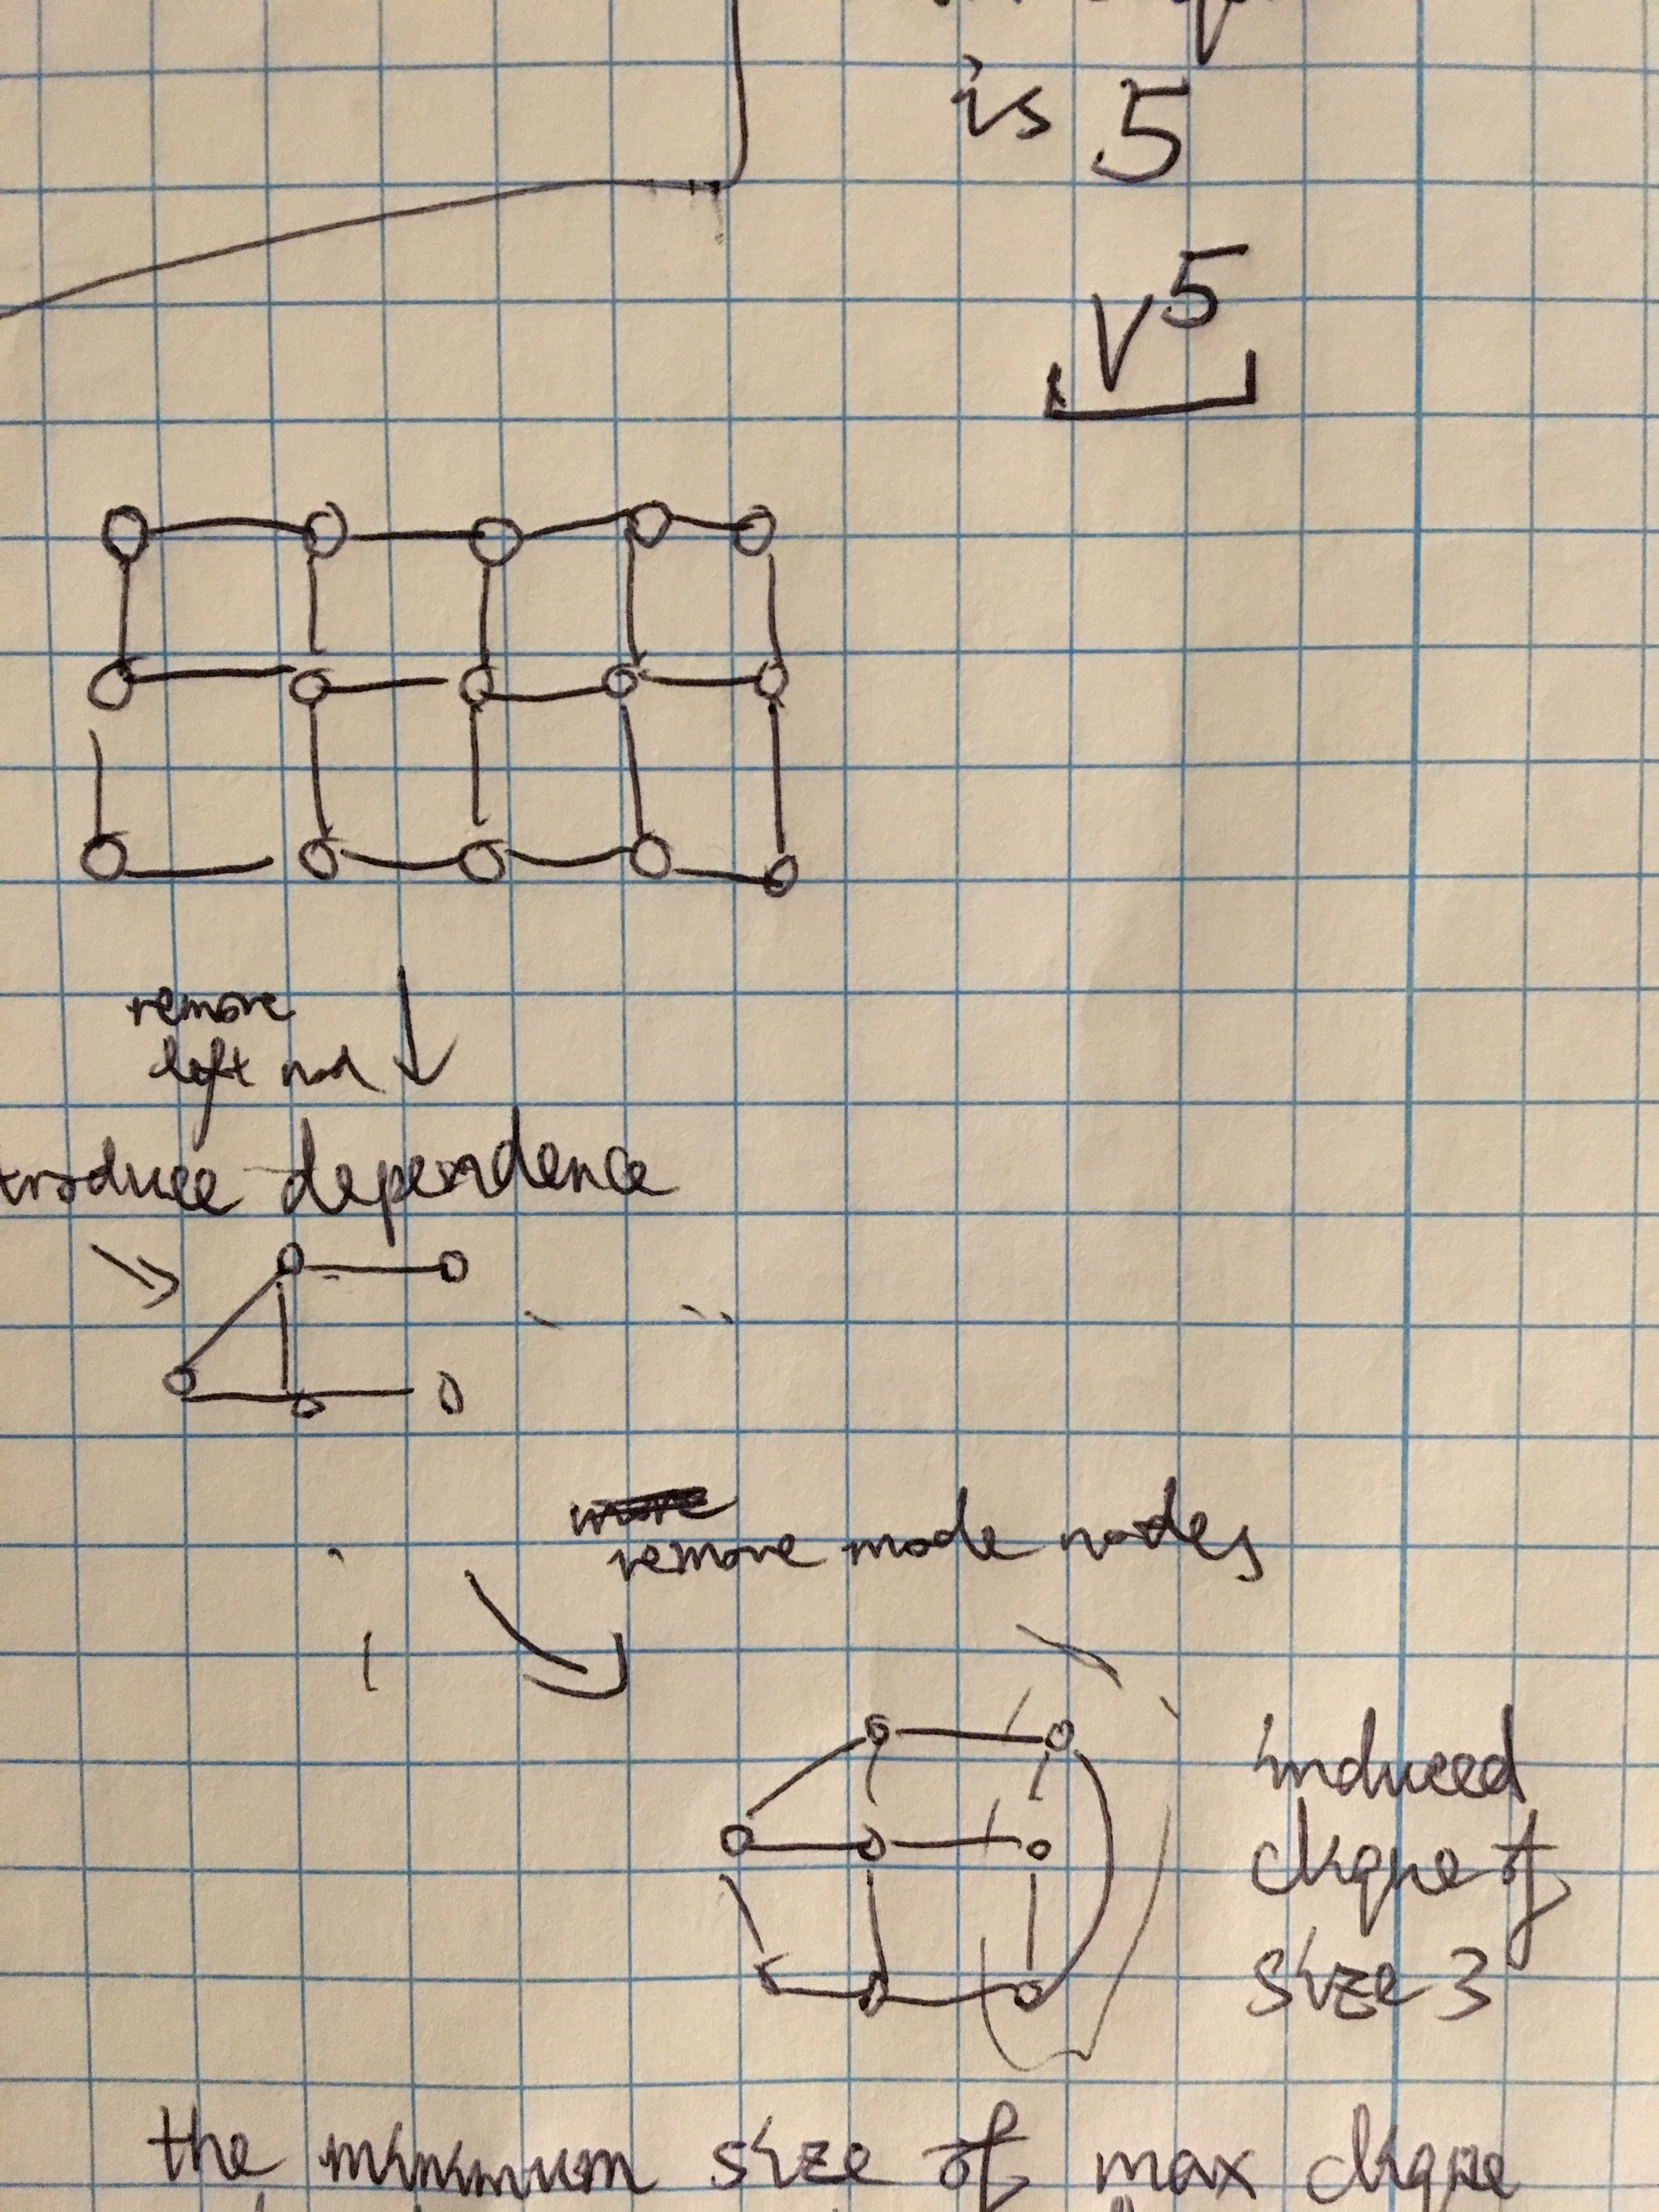 is 5
V^5
remove
left nod
troduce dependence
remove mode nodes
induced
clique of
size 3
the minimum size of max clique